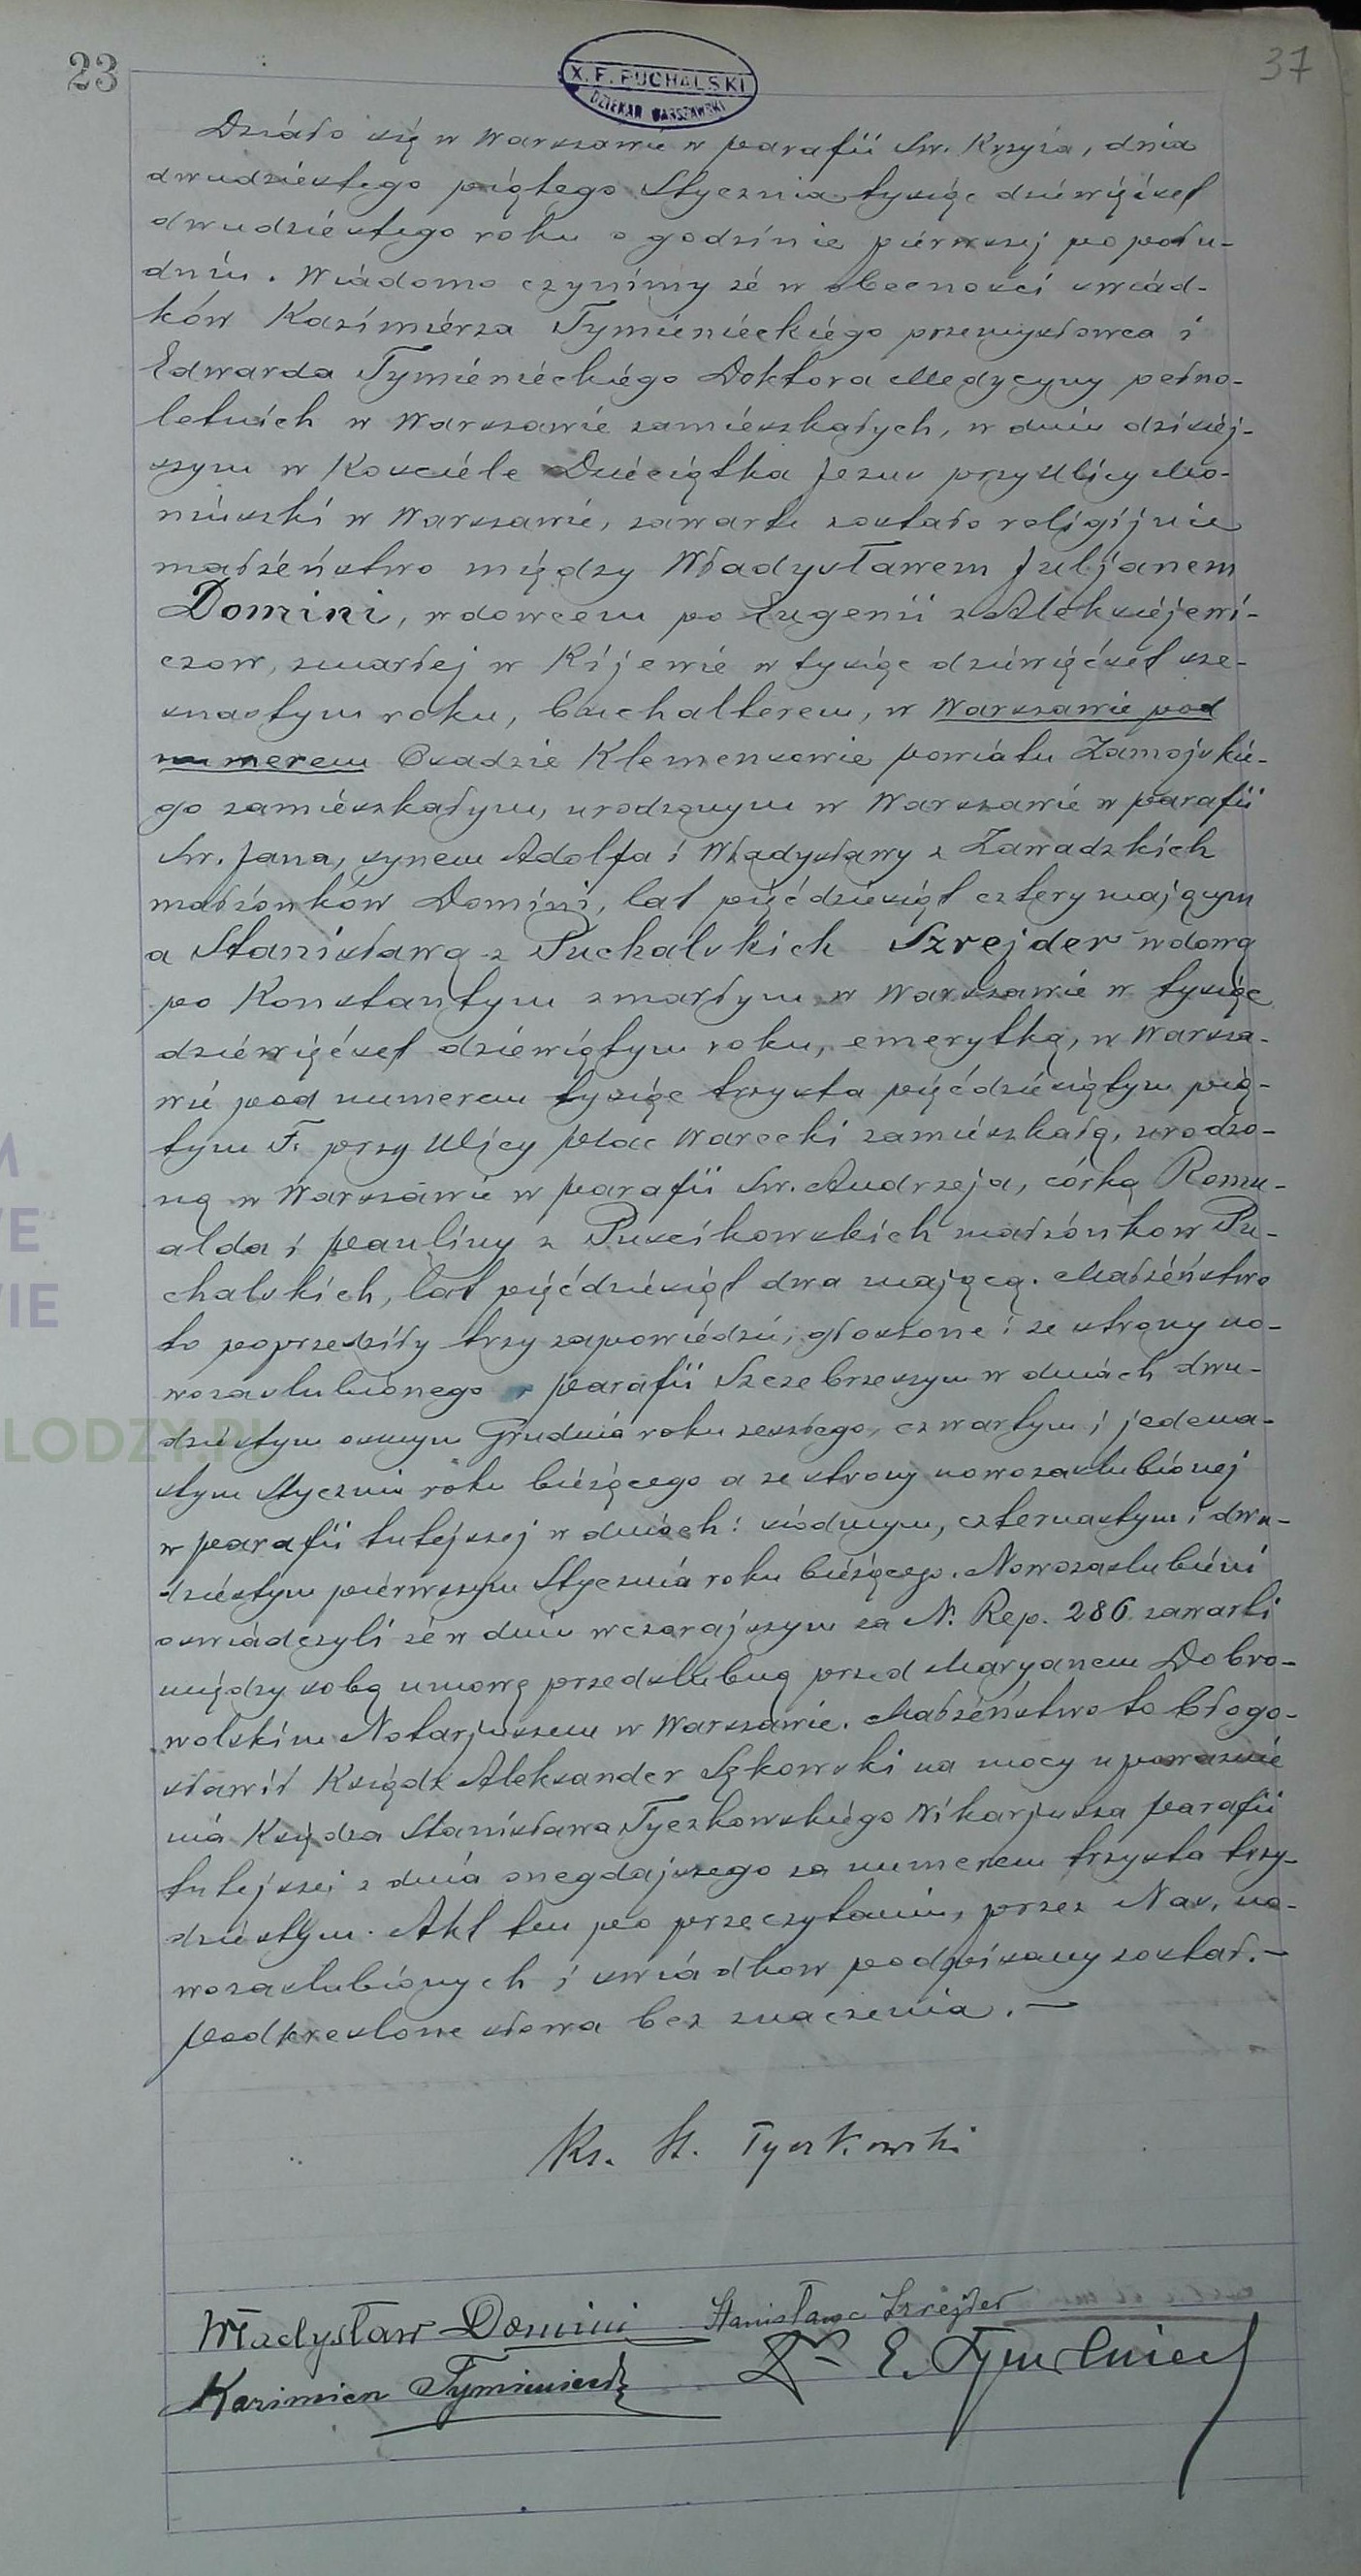 23
37
X. F. PUCHALSKI
DZIEKAN WARSZAWSKI
Działo się w Warszawie w parafii Św. Krzyża, dnia
dwudziestego piątego Stycznia tysiąc dziewięćset
dwudziestego roku o godzinie pierwszej po połu-
dniu. Wiadomo czynimy że w obecności świad-
ków Kazimierza Tymienieckiego przemysłowca i
Edwarda Tymienieckiego Doktora Medycyny pełno-
letnich w Warszawie zamieszkałych, w dniu dzisiej-
szym w Kościele Dzieciątka Jezus przy Ulicy Mo-
niuszki w Warszawie, zawarte zostało religijnie
małżeństwo między Władysławem Juljanem
Domini, wdowcem po Eugenii z Aleksiejewi-
czow, zmarłej w Kijewie w tysiąc dziewięćset sze-
snastym roku, buchalterem, w Warszawie pod
numerem Osadzie Klemensowie powiatu Zamojskie-
go zamieszkałym, urodzonym w Warszawie w parafii
Św. Jana, synem Adolfa i Władysławy z Zawadzkich
małżonków Domini, lat pięćdziesiąt cztery mającym
a Stanisławą z Puchalskich Szrejder wdową
po Konstantym zmarłym w Warszawie w tysiąc
dziewięćset dziewiątym roku, emerytką, w Warsza-
wie pod numerem tysiąc trzysta pięćdziesiątym pią-
tym F. przy Ulicy Plac Warecki zamieszkałą, urodzo-
ną w Warszawie w parafii Św. Andrzeja, córką Romu-
alda i Pauliny z Puscikowskich małżonkow Pu-
chalskich, lat pięćdziesiąt dwa mającą. Małżeństwo
to poprzedziły trzy zapowiedzi, głoszone: ze strony no-
wozaslubionego w parafii Szczebrzeszyn w dniach dwu-
dziestym osmym Grudnia roku zeszłego, czwartym i jedena-
stym Stycznia roku bieżącego a ze strony nowozaslubionej
w parafii tutejszej w dniach: siódmym, czternastym i dwu-
dziestym pierwszym Stycznia roku bieżącego. Nowozaslubieni
oswiadczyli że w dniu wczorajszym za N. Rep. 286 zawarli
między sobą umowę przedslubną przed Maryanem Dobro-
wolskim Notarjuszem w Warszawie. Małżeństwo to błogo-
sławił Ksiądz Aleksander Sękowski na mocy upoważnie
nia Księdza Stanisława Tyczkowskiego Wikarjusza parafii
tutejszej z dnia onegdajszego za numerem trzysta trzy-
dziestym. Akt ten po przeczytaniu, przez Nas, no-
wozaslubionych i swiadkow podpisany został. —
Podkreslone słowa bez znaczenia. —
Ks. St. Tyczkowski
Władysław Domini Stanisława Szrejder
Kazimierz Tymieniecki Dr E. Tymieniecki
LODZY.PL